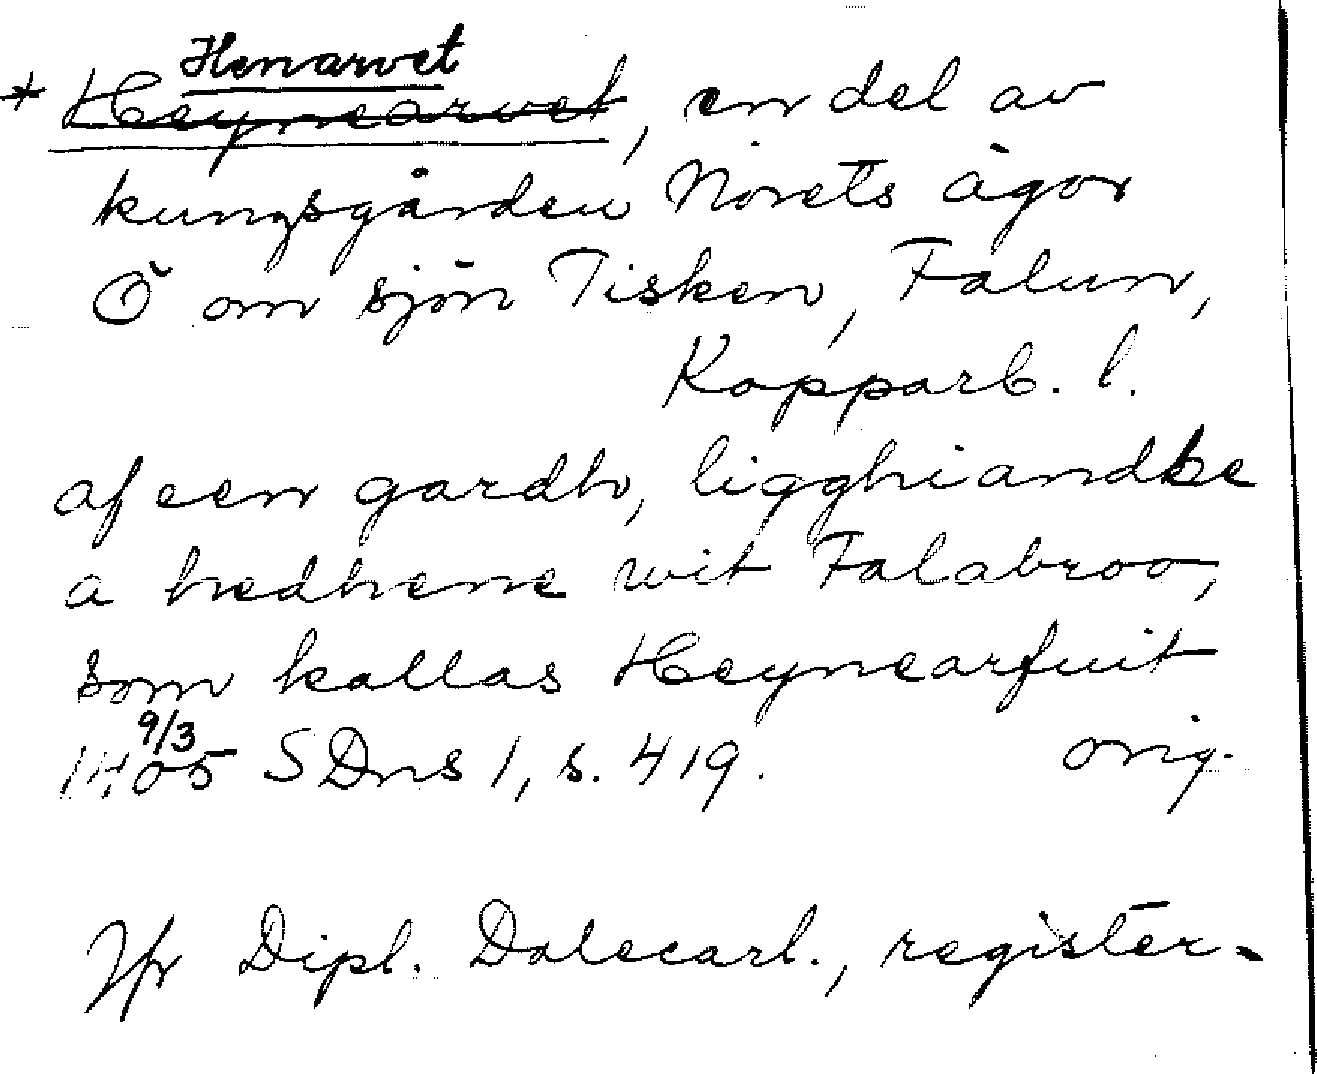 Henarvet
* Heynearvet, en del av
kungsgården Norets ägor
Ö om sjön Tisken, Falun,
Kopparb. l.
af een gardh, ligghiandhe
a hedhene wit Falabroo,
som kallas Heynearfuit
9/3
1405 SDns 1, s. 419. orig.
Jfr Dipl. Dalecarl., register-